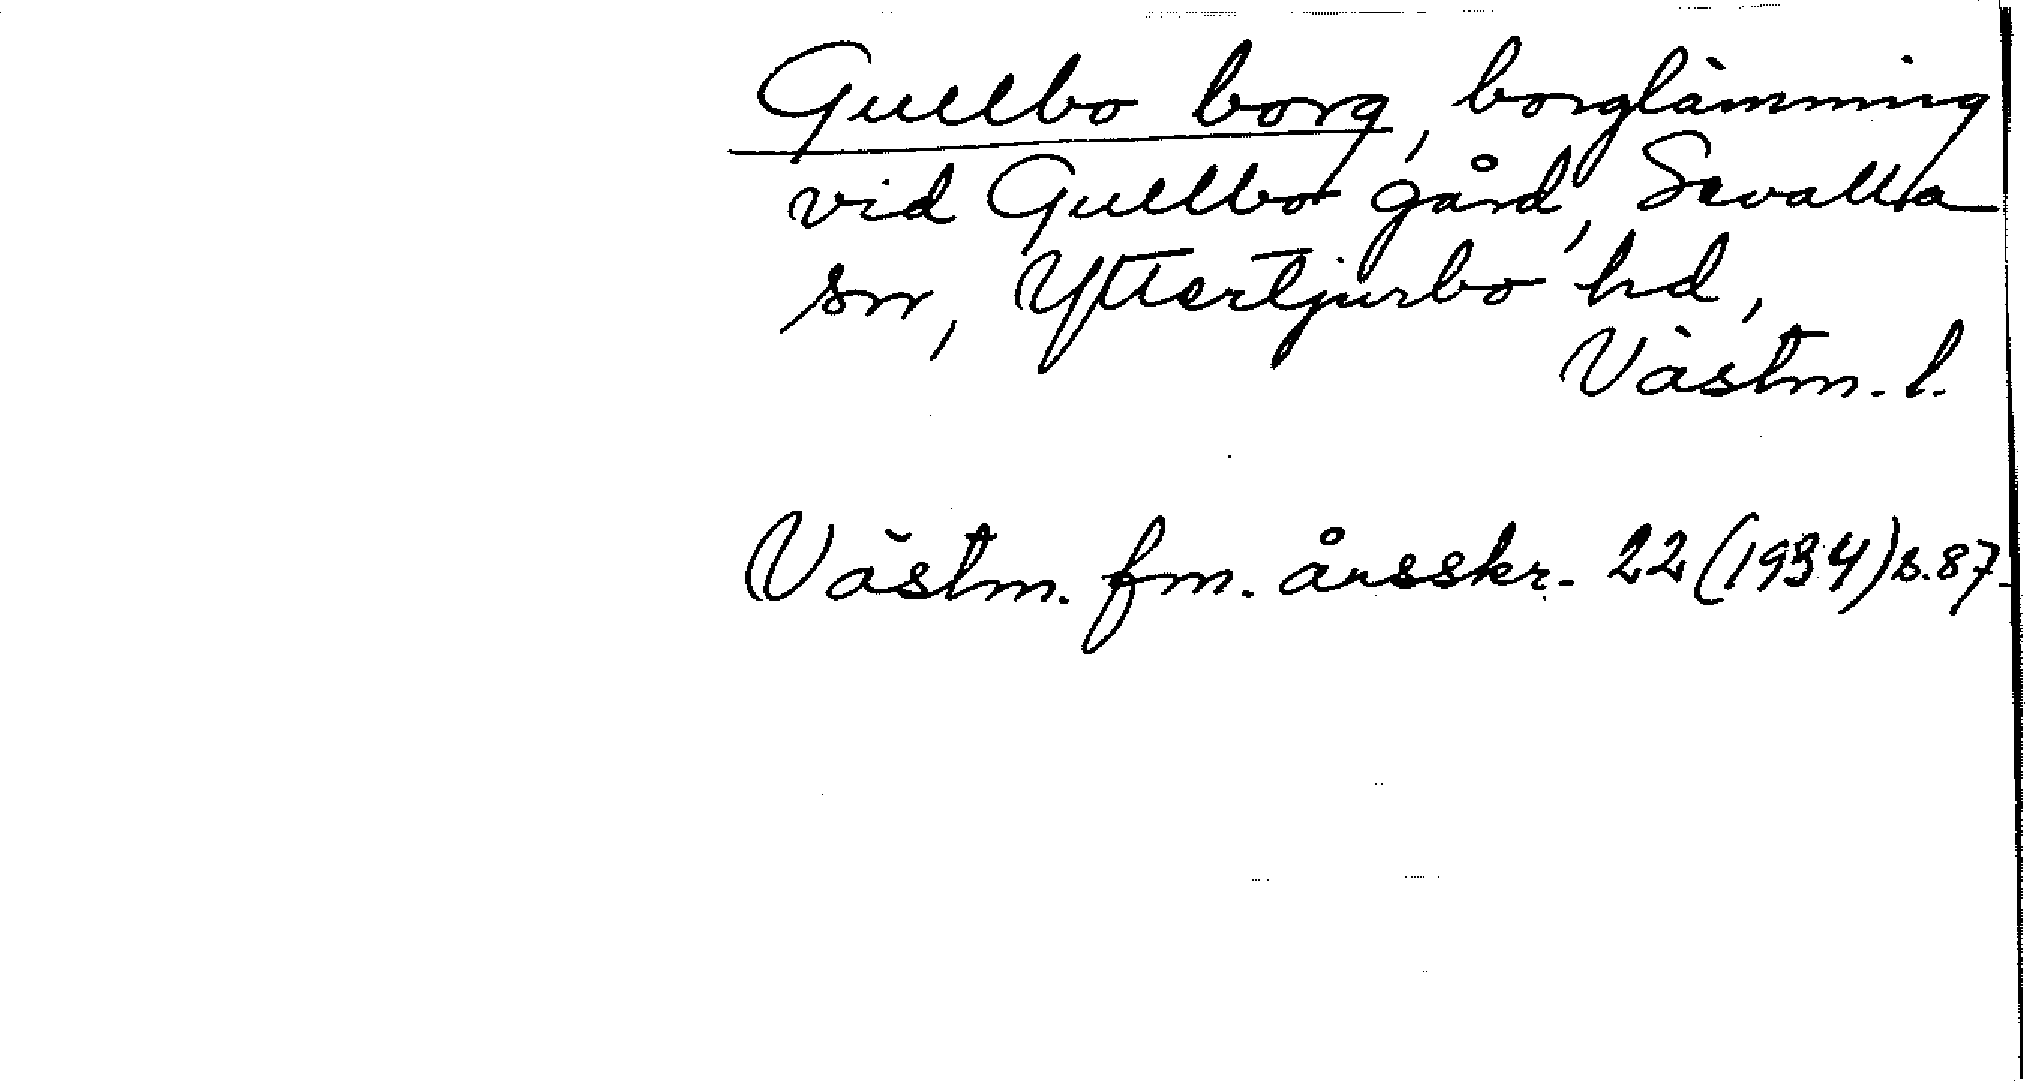 Gullbo borg, borglämning
vid Gullbo gård, Sevalla
sn, Yttertjurbo hd,
Västm. l.
Västm. fm. årsskr. 22 (1934) s. 87.